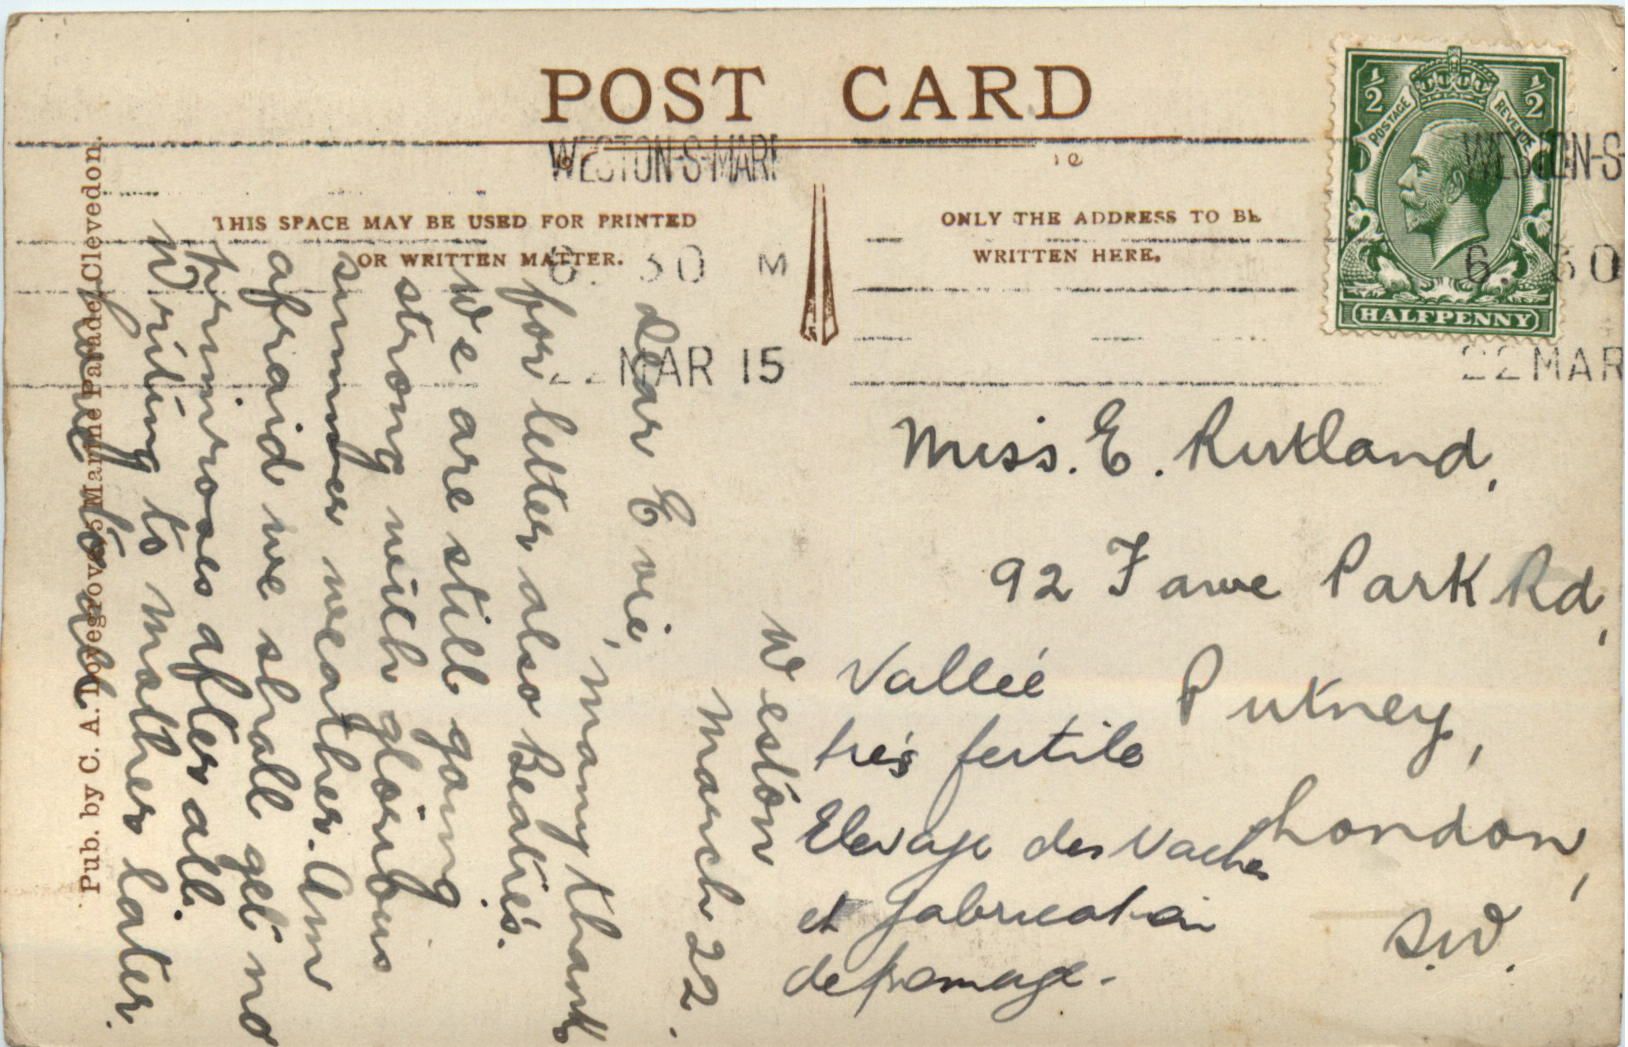 POST CARD
WESTON-S-MAR
WESTON-S-
THIS SPACE MAY BE USED FOR PRINTED
OR WRITTEN MATTER.
ONLY THE ADDRESS TO BE
WRITTEN HERE.
6. 30 M
6. 30
MAR 15
22 MAR
½ ½
POSTAGE REVENUE
HALFPENNY
Pub. by C. A. Dovegrove, 5 Marine Parade, Clevedon.
Weston
March 22.
Dear Evie, many thanks
for letter also Beatie's.
We are still going
strong with glorious
summer weather. Am
afraid we shall get no
primroses after all.
Writing to mother later.
love to all
Miss. E. Rutland,
92 Fawe Park Rd,
Putney,
London,
S.W.
Valleé
trés fertile
Elevage des Vaches
et fabrication
de fromage.